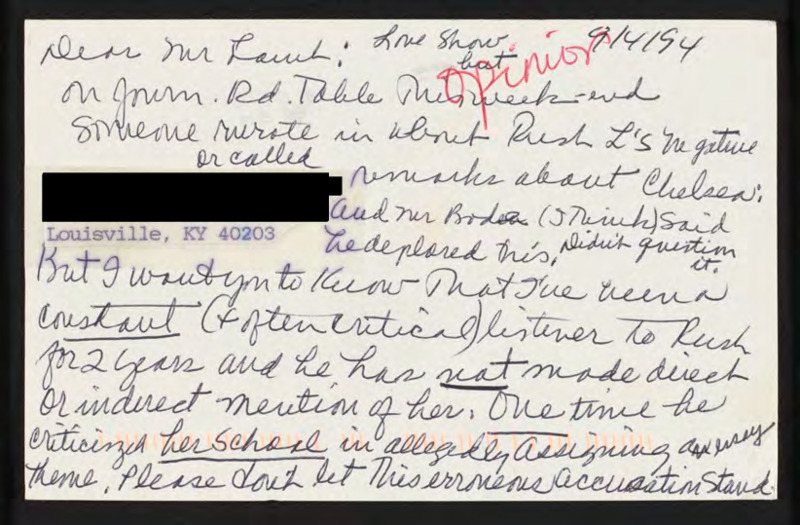 Dear Mr Lamb: Love Show, 9/4/94
but
Opinion
on Journ. Rd. Table This week-end
Someone wrote in about Rush L's negative
or called
remarks about Chelsea:
and Mr Boden (I think) said
Louisville, KY 40203
he deplored this. Didn't question
it.
But I want you to know that I've been a
constant (& often critical) listener to Rush
for 2 years and he has not made direct
or indirect mention of her. One time he
criticizen her school in allegedly assigning an essay
theme. Please don't let this erroneous accusation stand.